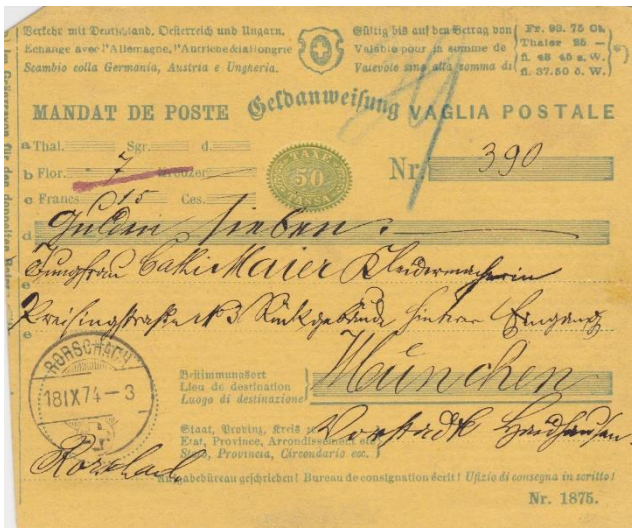 Verkehr mit Deutschland, Oesterreich und Ungarn.
Echange avec l'Allemagne, l'Autriche &la Hongrie
Scambio colla Germania, Austria e Ungheria.
Gültig bis auf den Betrag von
Valable pour la somme de
Valevole sino alla somma di
Fr. 93. 75 Ct.
Thaler 25 —
fl. 43 45 s. W.
fl. 37.50 ö. W.
MANDAT DE POSTE Geldanweisung VAGLIA POSTALE
a Thal. Sgr. d.
b Flor. 7 Kreuzer
c Francs 15 Ces.
TAXE
50
TASSA
Nr. 390
d Gulden sieben.
Jungfrau Cathi Maier Kleidermacherin
e Preisingstraße N 3 Rückgebäude hinterer Eingang
RORSCHACH
18 IX 74 — 3
Bestimmungsort
Lieu de destination
Luogo di destinazione
München
Staat, Provinz, Kreis
Etat, Province, Arrondissement etc.
Stato, Provincia, Circondario ecc.
Vorstadt Haidhausen
Rorschach
Aufgabebüreau geschrieben! Bureau de consignation écrit! Ufizio di consegna in scritto!
Nr. 1875.